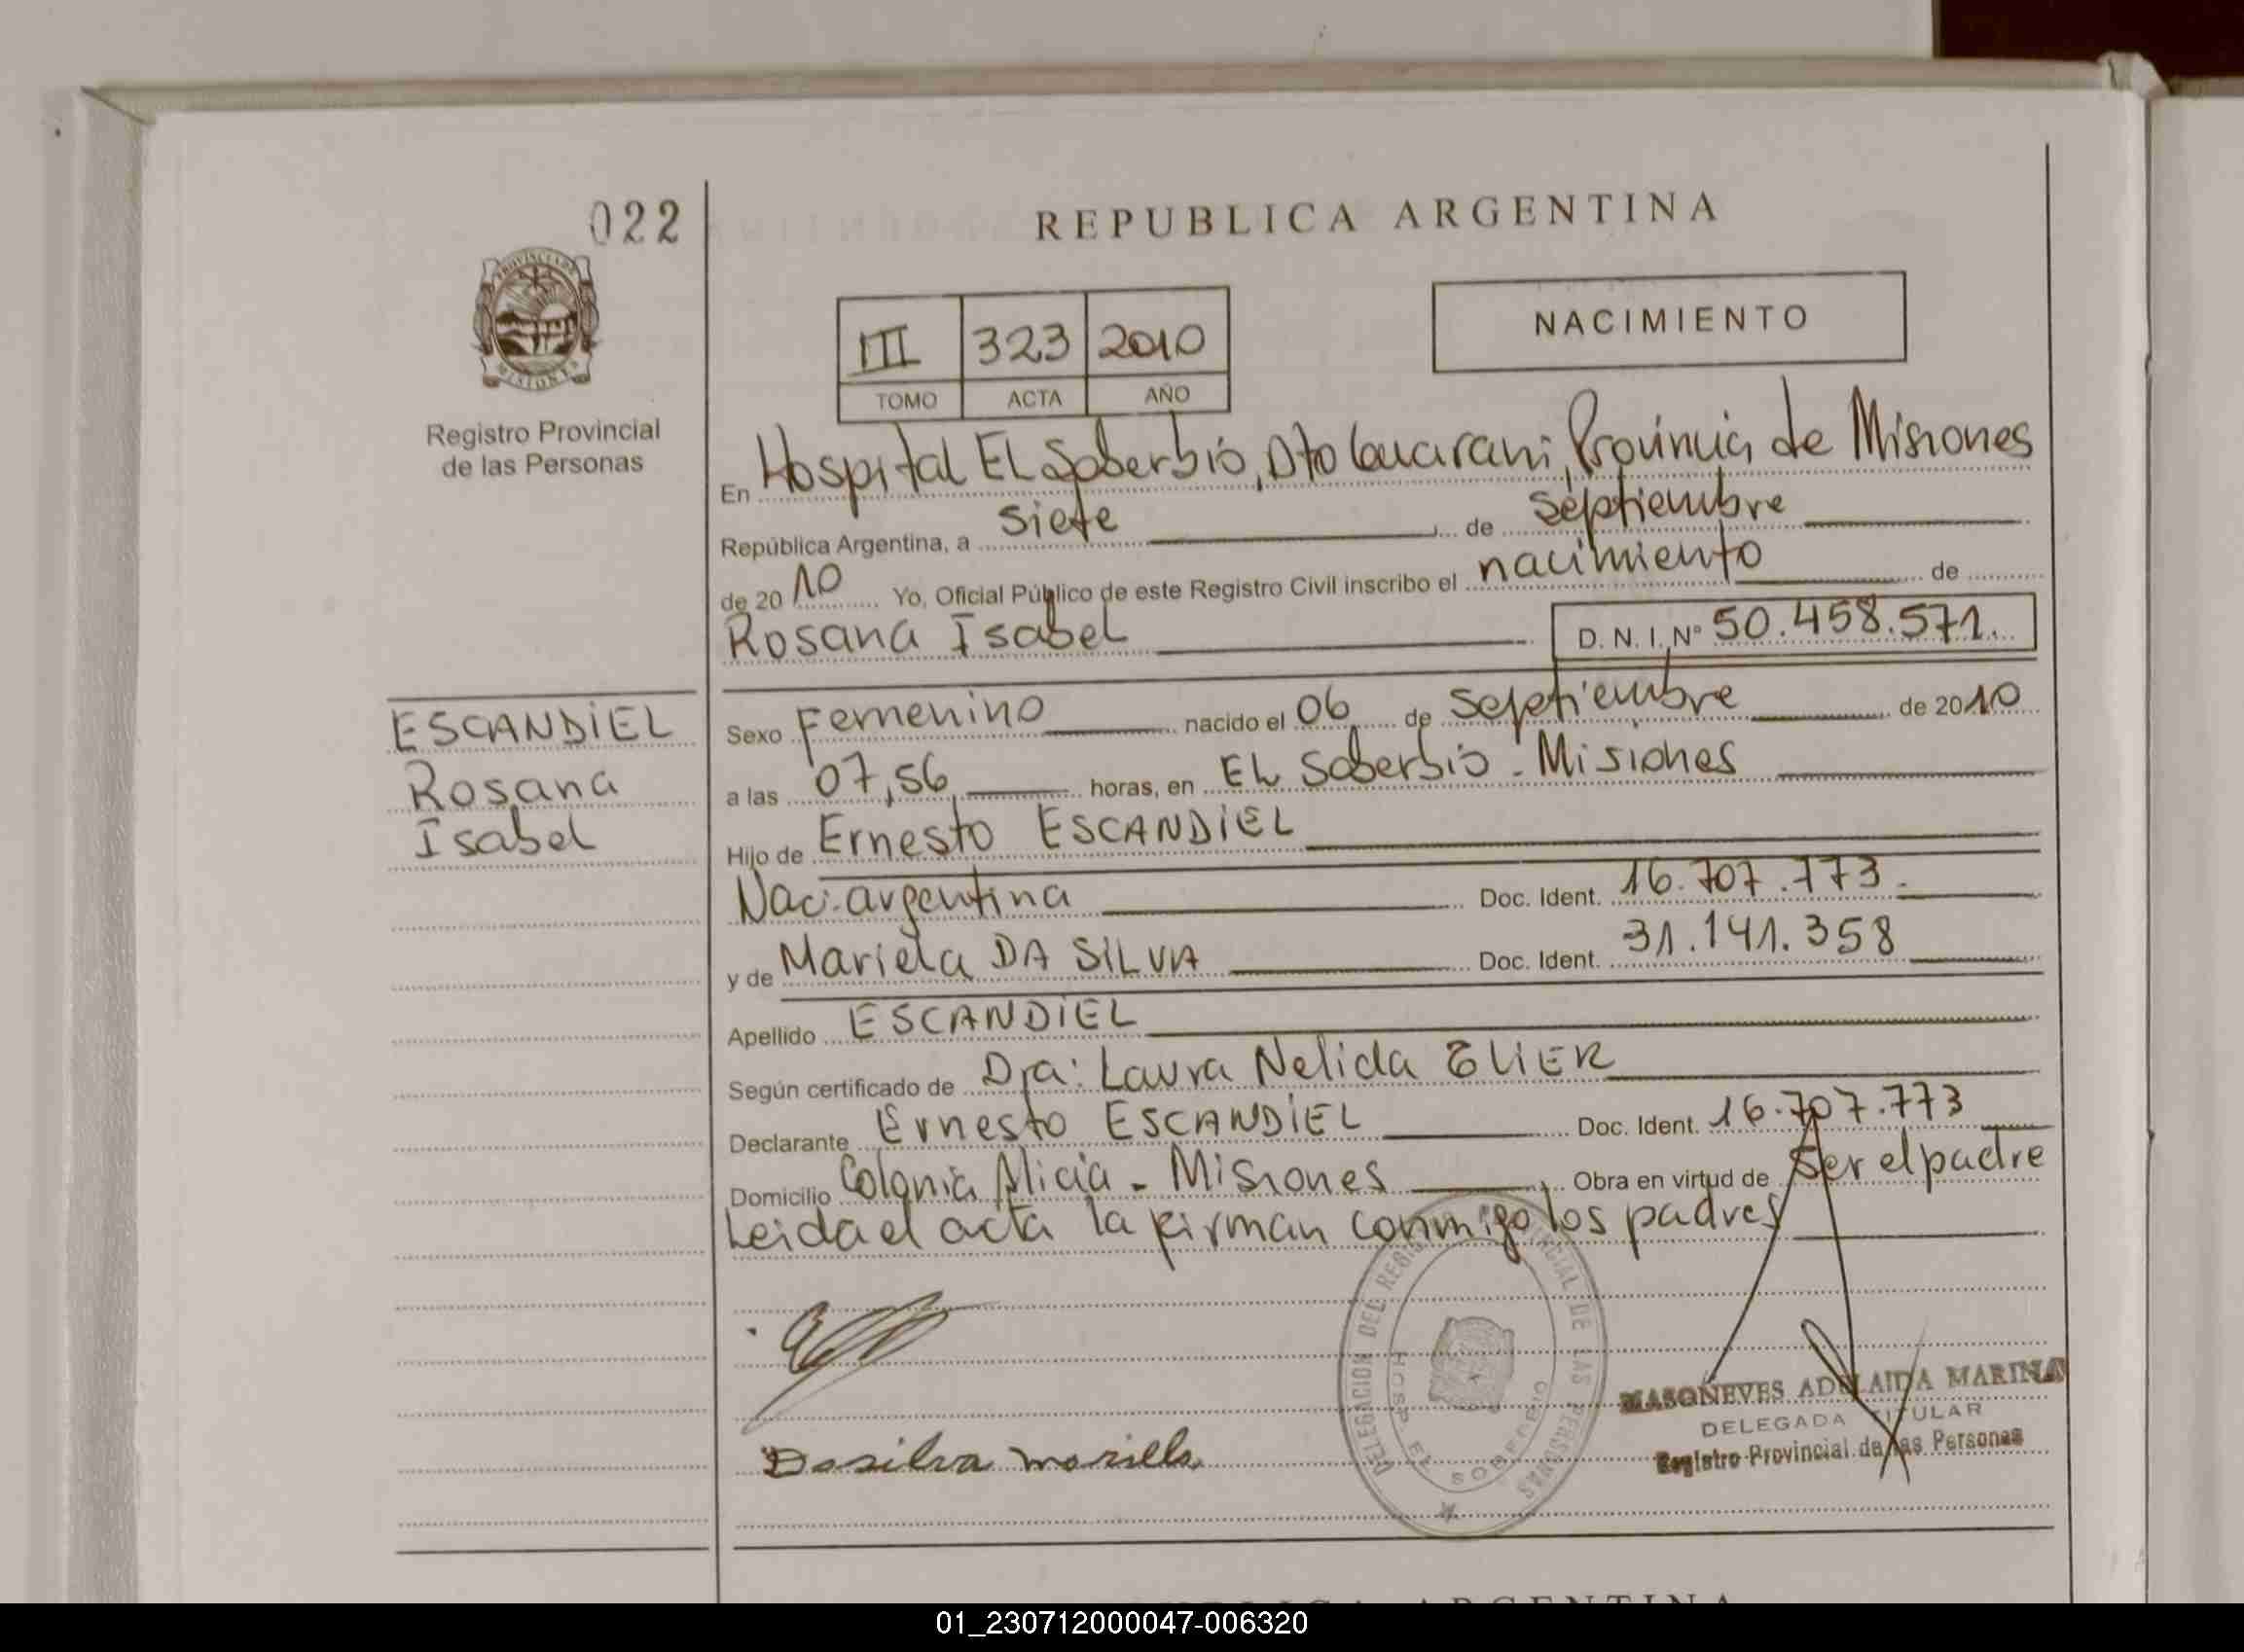 022
REPUBLICA ARGENTINA
PROVINCIA DE MISIONES
III 323 2010
TOMO ACTA AÑO
NACIMIENTO
Registro Provincial
de las Personas
En Hospital EL Soberbio, Dto Guarani, Provincia de Misiones
República Argentina, a siete de septiembre
de 2010 Yo, Oficial Público de este Registro Civil inscribo el nacimiento de
Rosana Isabel D.N.I. Nº 50.458.571.
ESCANDiEL
Rosana
Isabel
Sexo Femenino nacido el 06 de Septiembre de 2010
a las 07,56 horas, en EL Soberbio - Misiones
Hijo de Ernesto ESCANDiEL
Nac. argentina Doc. Ident. 16.707.773.
y de Mariela DA SiLVA Doc. Ident. 31.141.358
Apellido ESCANDiEL
Según certificado de Dra: Laura Nelida
Declarante Ernesto ESCANDiEL Doc. Ident. 16.707.773
Domicilio Colonia Alicia - Misiones Obra en virtud de Ser el padre
Leida el acta la firman conmigo los padres
Dasilva mariela
DELEGACION DEL REGISTRO PROVINCIAL DE LAS PERSONAS
HOSP. EL SOBERBIO
MASONEVES ADELAIDA MARINA
DELEGADA TITULAR
Registro Provincial de las Personas
01_230712000047-006320